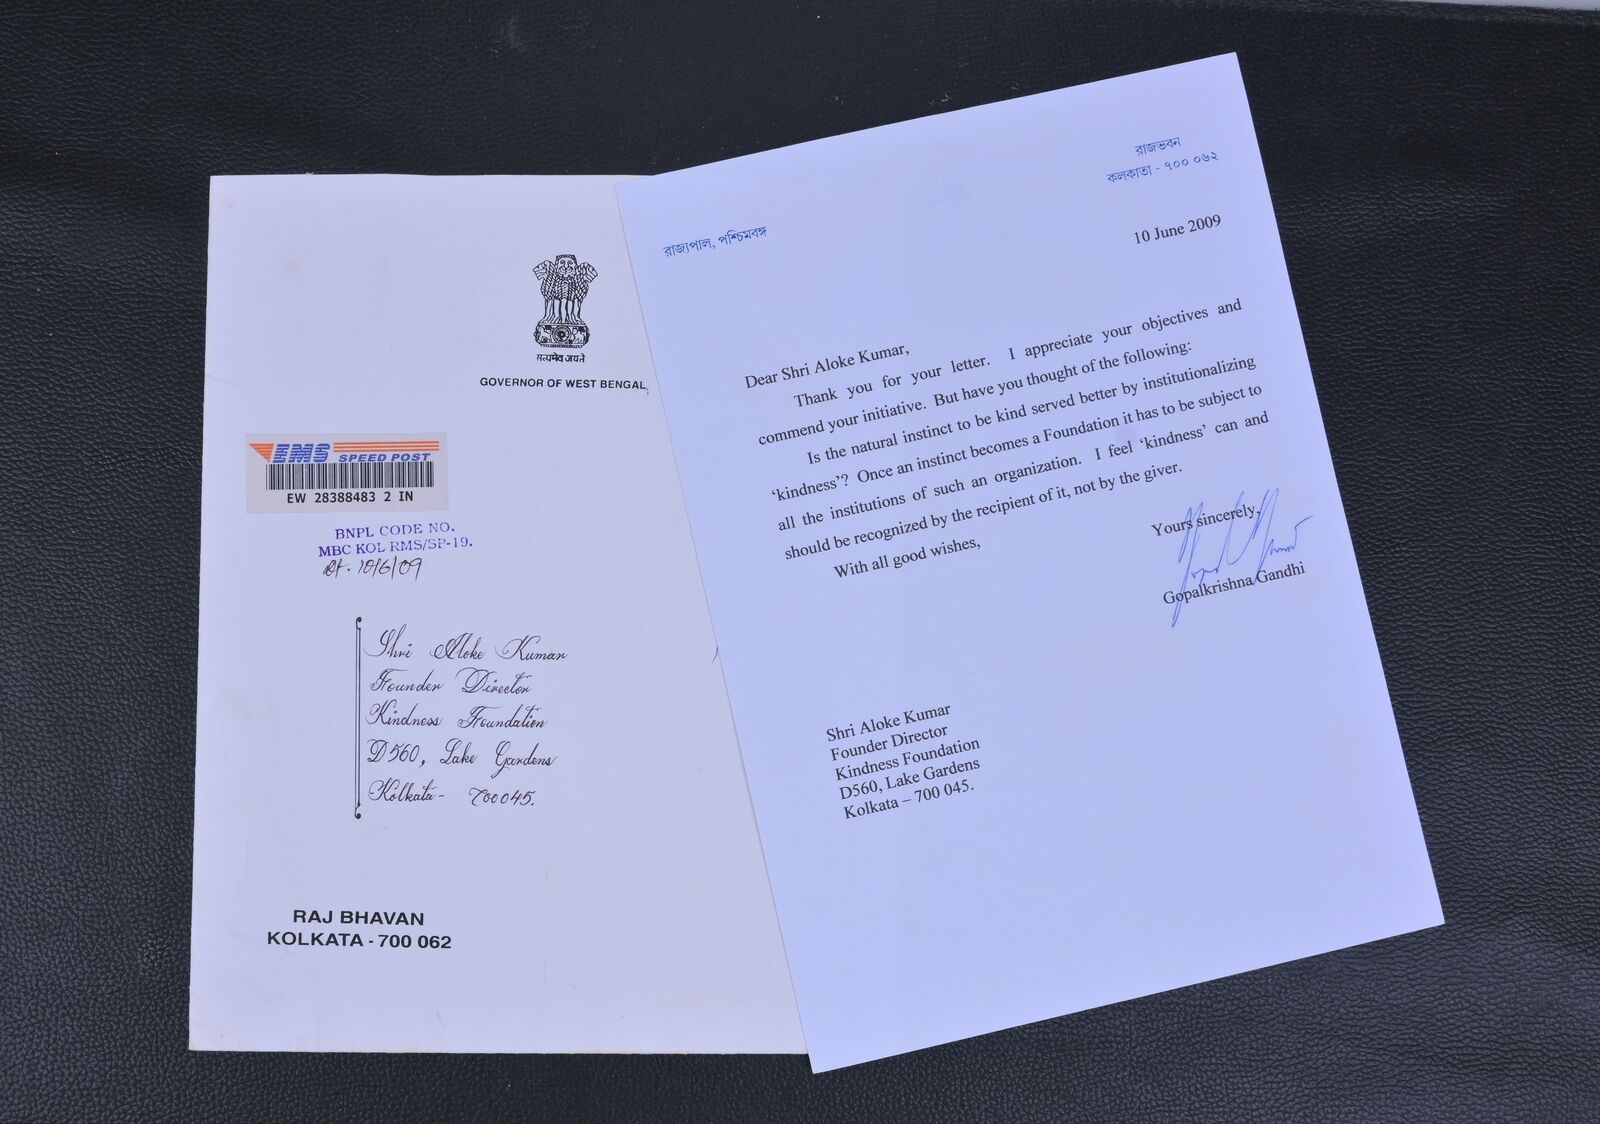 सत्यमेव जयते
GOVERNOR OF WEST BENGAL
EMS
SPEED POST
EW 28388483 2 IN
BNPL CODE NO.
MBC KOL RMS/SP-19.
Dt. 10/6/09
Shri Aloke Kumar
Founder Director
Kindness Foundation
D560, Lake Gardens
Kolkata - 700045.
RAJ BHAVAN
KOLKATA - 700 062
রাজ্যপাল, পশ্চিমবঙ্গ
রাজভবন
কলকাতা - ৭০০ ০৬২
10 June 2009
Dear Shri Aloke Kumar,
Thank you for your letter. I appreciate your objectives and
commend your initiative. But have you thought of the following:
Is the natural instinct to be kind served better by institutionalizing
‘kindness’? Once an instinct becomes a Foundation it has to be subject to
all the institutions of such an organization. I feel ‘kindness’ can and
should be recognized by the recipient of it, not by the giver.
With all good wishes,
Yours sincerely,
Gopalkrishna Gandhi
Shri Aloke Kumar
Founder Director
Kindness Foundation
D560, Lake Gardens
Kolkata – 700 045.